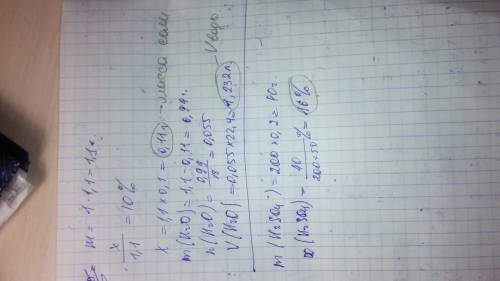 m = 1·1,1 = 1,1г.
x/1,1 = 10%
x = 1,1 × 0,1 = 0,11г - масса соли
m(H2O) = 1,1-0,11 = 0,99г.
n(H2O) = 0,99/18 = 0,055
V(H2O) = 0,055×22,4 = 1,232л - V воды
m(H2SO4) = 200×0,2 = 40г.
ω(H2SO4) - 40/200+50 % = 16%